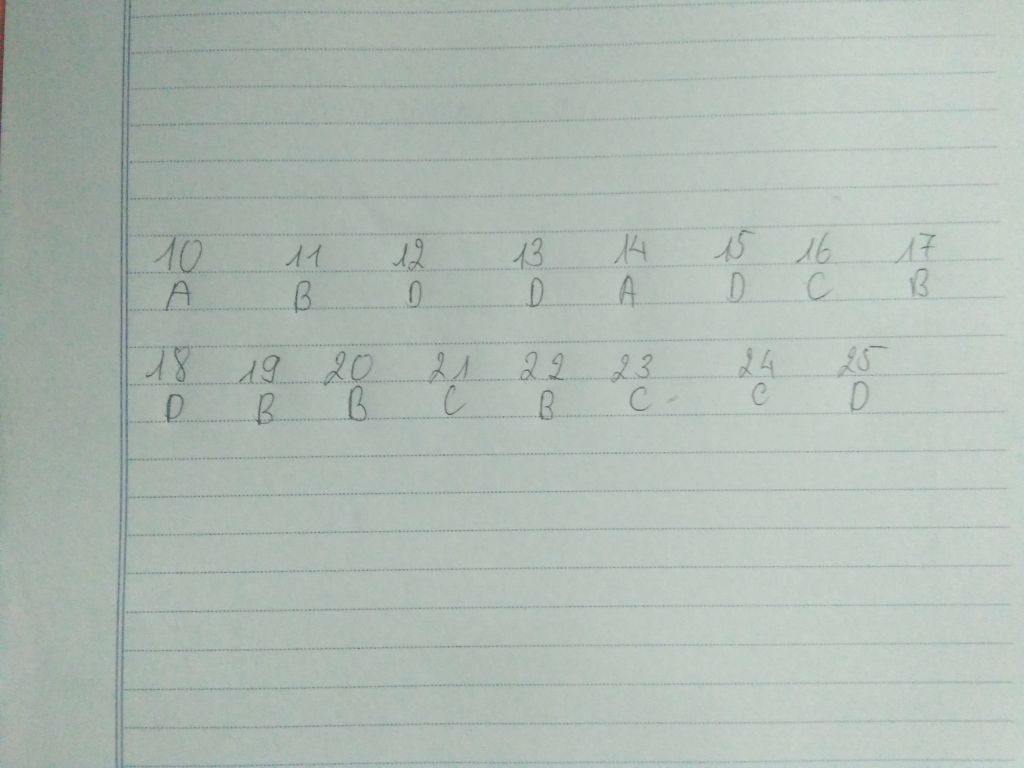 10 11 12 13 14 15 16 17
A B D D A D C B
18 19 20 21 22 23 24 25
D B B C B C C D